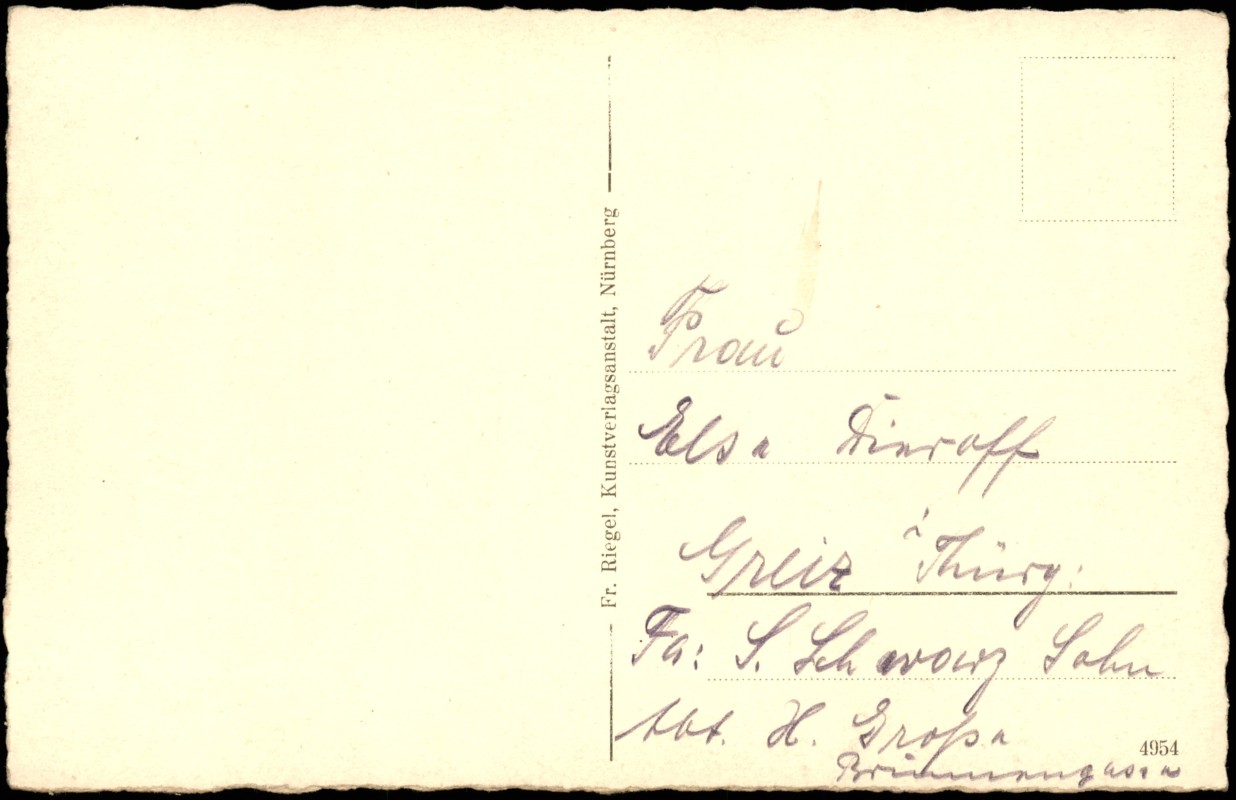 Fr. Riegel, Kunstverlagsanstalt, Nürnberg
Frau
Elsa Dieroff
Greiz i Thürg.
Fa: S. Schwarz Sohn
Abt. H. Große
4954
Brunnengasse